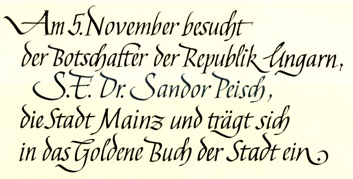 Am 5. November besucht
der Botschafter der Republik Ungarn,
S.E. Dr. Sandor Peisch,
die Stadt Mainz und trägt sich
in das Goldene Buch der Stadt ein.